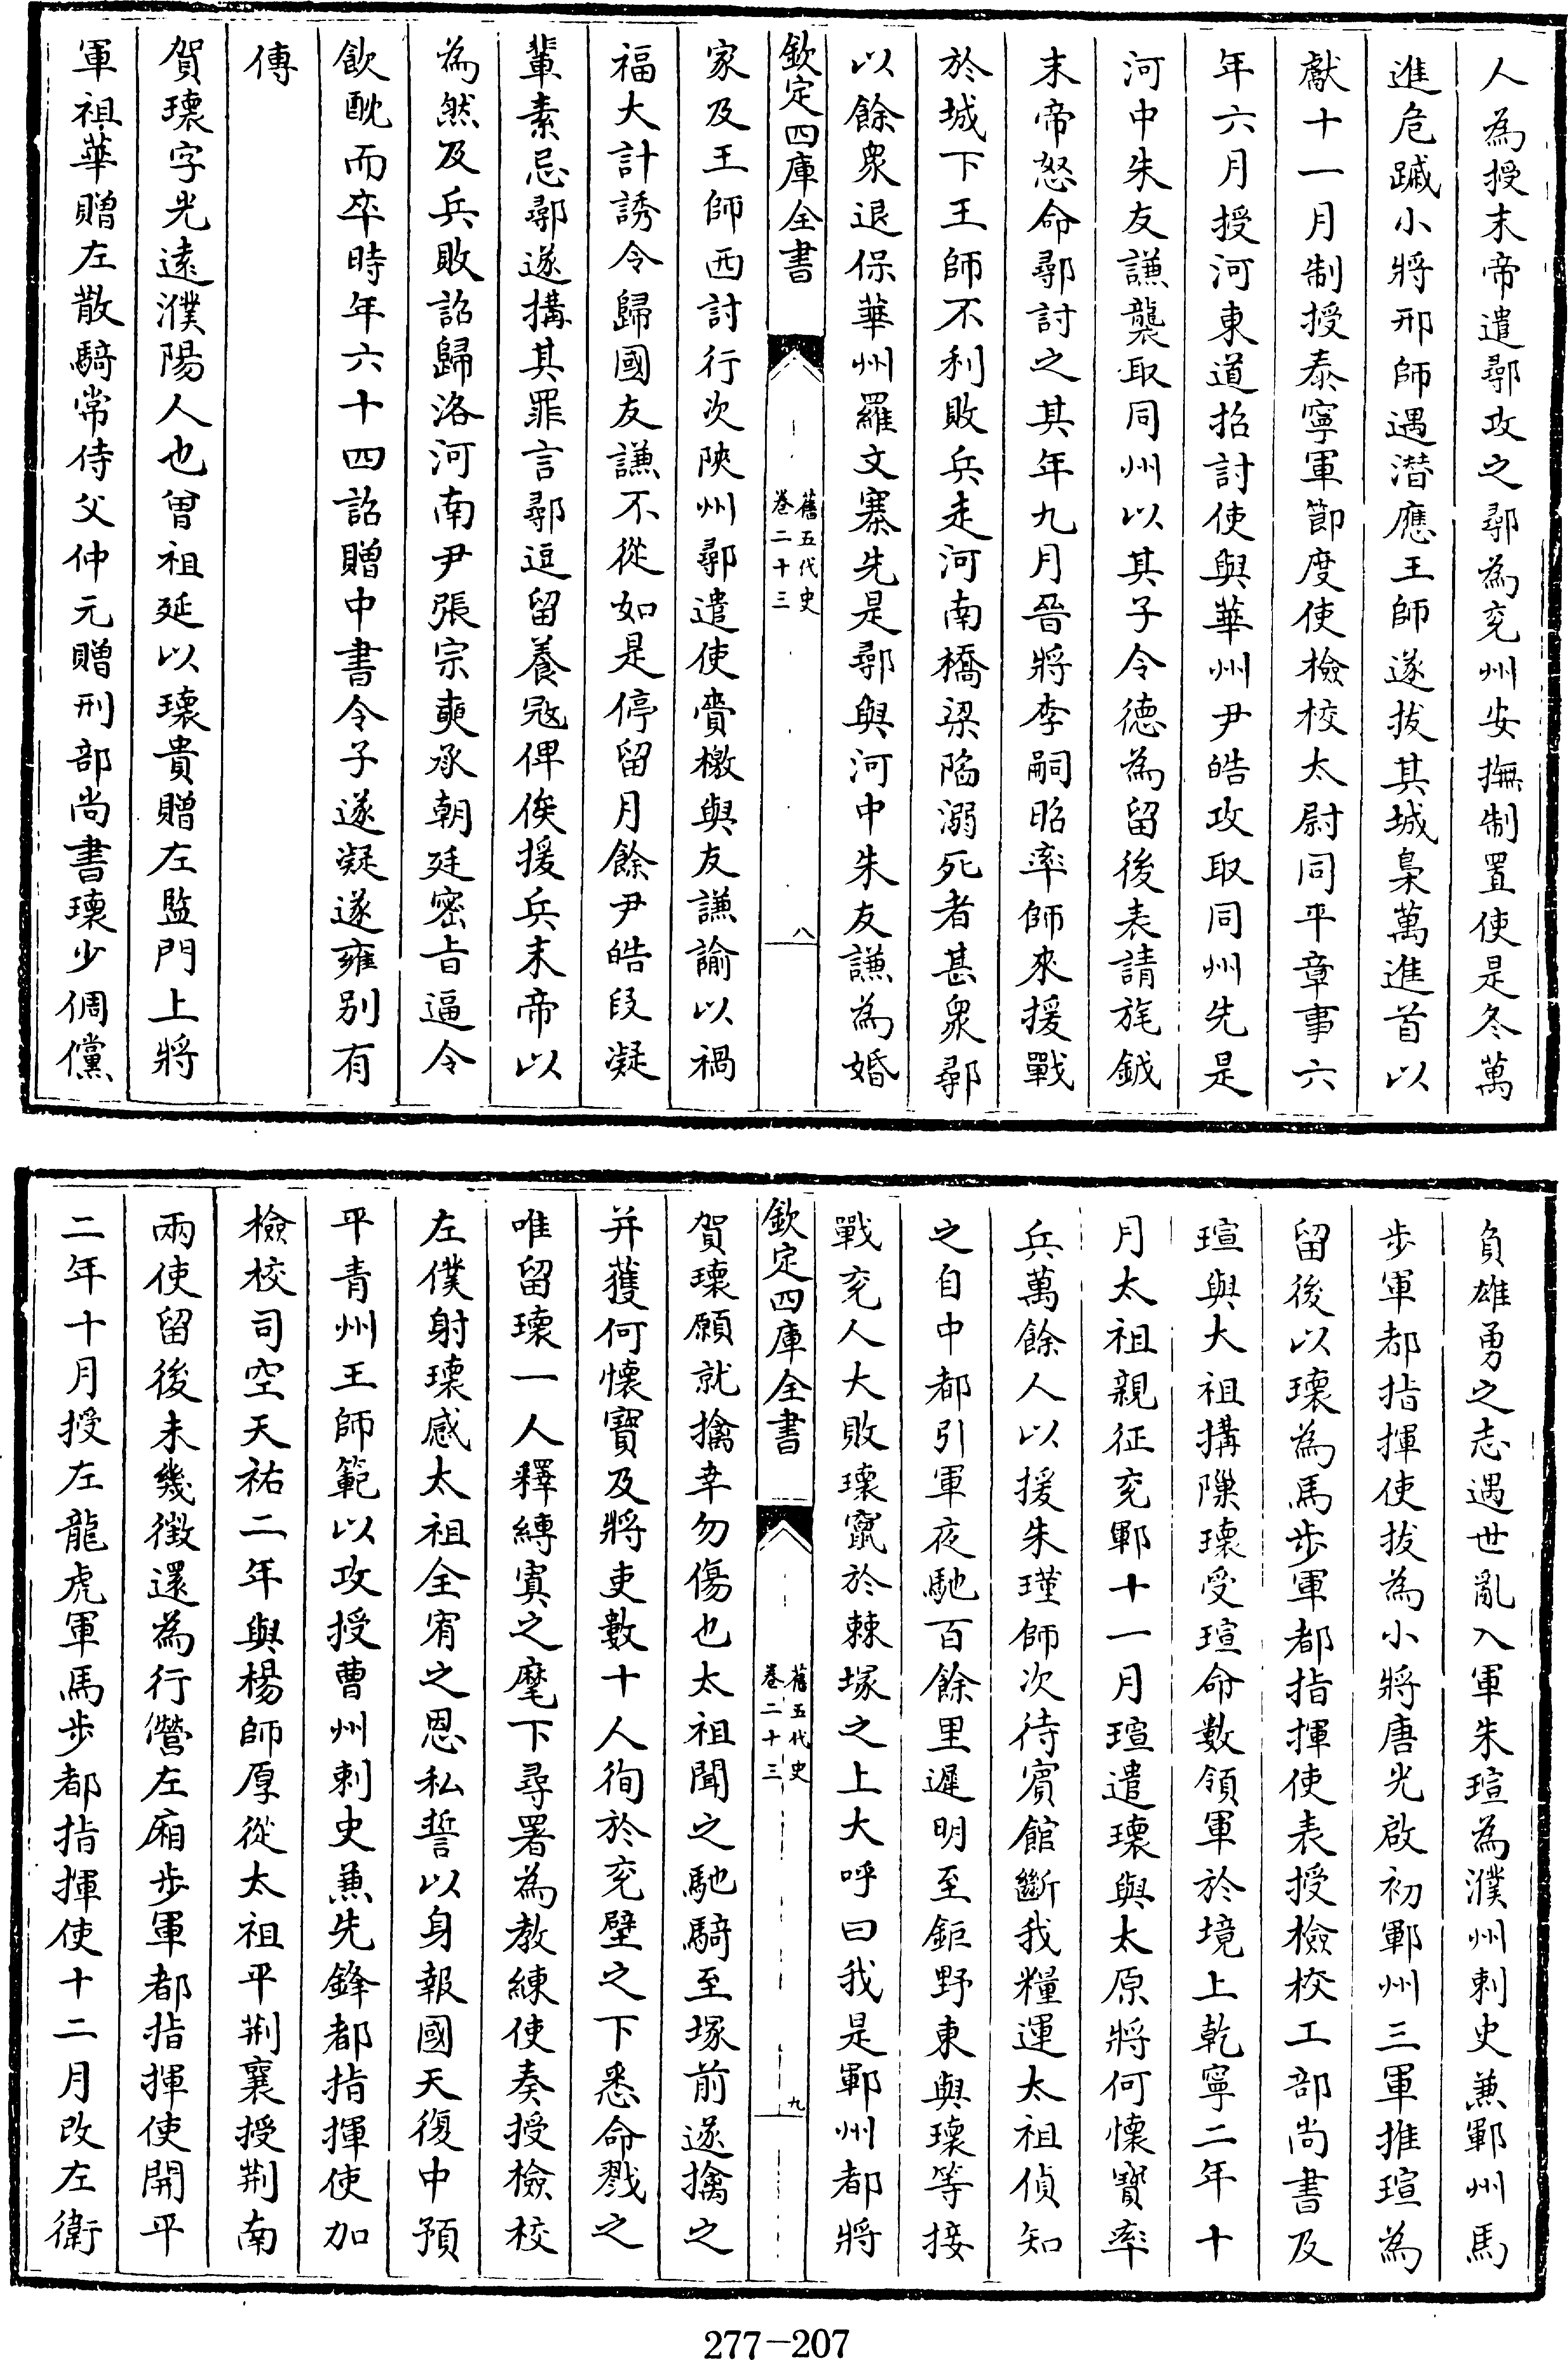 人為授末帝遣鄩攻之鄩為兖州安撫制置使是冬萬
進危蹙小將邢師遇潜應王師遂拔其城梟萬進首以
獻十一月制授泰寧軍節度使檢校太尉同平章事六
年六月授河東道招討使與華州尹皓攻取同州先是
河中朱友謙襲取同州以其子令德為留後表請旄鉞
末帝怒命鄩討之其年九月晉將李嗣昭率師來援戰
於城下王師不利敗兵走河南橋梁陷溺死者甚衆鄩
以餘衆退保華州羅文寨先是鄩與河中朱友謙為婚
欽定四庫全書
舊五代史
卷二十三
八
家及王師西討行次陝州鄩遣使賫檄與友謙諭以禍
福大計誘令歸國友謙不從如是停留月餘尹皓段凝
輩素忌鄩遂搆其罪言鄩逗留養寇俾俟援兵末帝以
為然及兵敗詔歸洛河南尹張宗奭承朝廷密旨逼令
飲酖而卒時年六十四詔贈中書令子遂凝遂雍别有
傳
賀瓌字光遠濮陽人也曾祖延以瓌貴贈左監門上將
軍祖華贈左散騎常侍父仲元贈刑部尚書瓌少倜儻
負雄勇之志遇世亂入軍朱瑄為濮州刺史兼鄆州馬
步軍都指揮使拔為小將唐光啟初鄆州三軍推瑄為
留後以瓌為馬步軍都指揮使表授檢校工部尚書及
瑄與大祖搆隟瓌受瑄命數領軍於境上乾寧二年十
月太祖親征兖鄆十一月瑄遣瓌與太原將何懷寶率
兵萬餘人以援朱瑾師次待賓館斷我糧運太祖偵知
之自中都引軍夜馳百餘里遲明至鉅野東與瓌等接
戰兖人大敗瓌竄於棘塚之上大呼曰我是鄆州都將
欽定四庫全書
舊五代史
卷二十三
九
賀瓌願就擒幸勿傷也太祖聞之馳騎至塚前遂擒之
并獲何懷寶及將吏數十人徇於兖壁之下悉命戮之
唯留瓌一人釋縛寘之麾下尋署為教練使奏授檢校
左僕射瓌感太祖全宥之恩私誓以身報國天復中預
平青州王師範以攻授曹州刺史兼先鋒都指揮使加
檢校司空天祐二年與楊師厚從太祖平荆襄授荆南
兩使留後未幾徴還為行營左廂步軍都指揮使開平
二年十月授左龍虎軍馬步都指揮使十二月改左衛
277-207